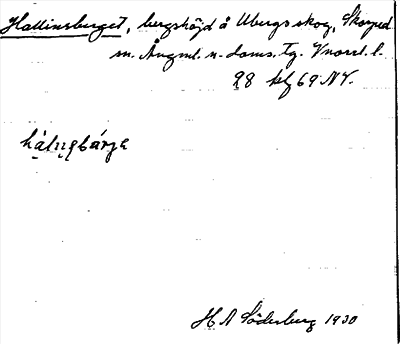 Hallinsberget, bergshöjd å Ubergs skog, Skorped
sn. Ångml. n. doms. Tg. Vnorrl. l.
98 kbf 69. NV.
hálıŋbárjɛ
H A Söderberg 1930